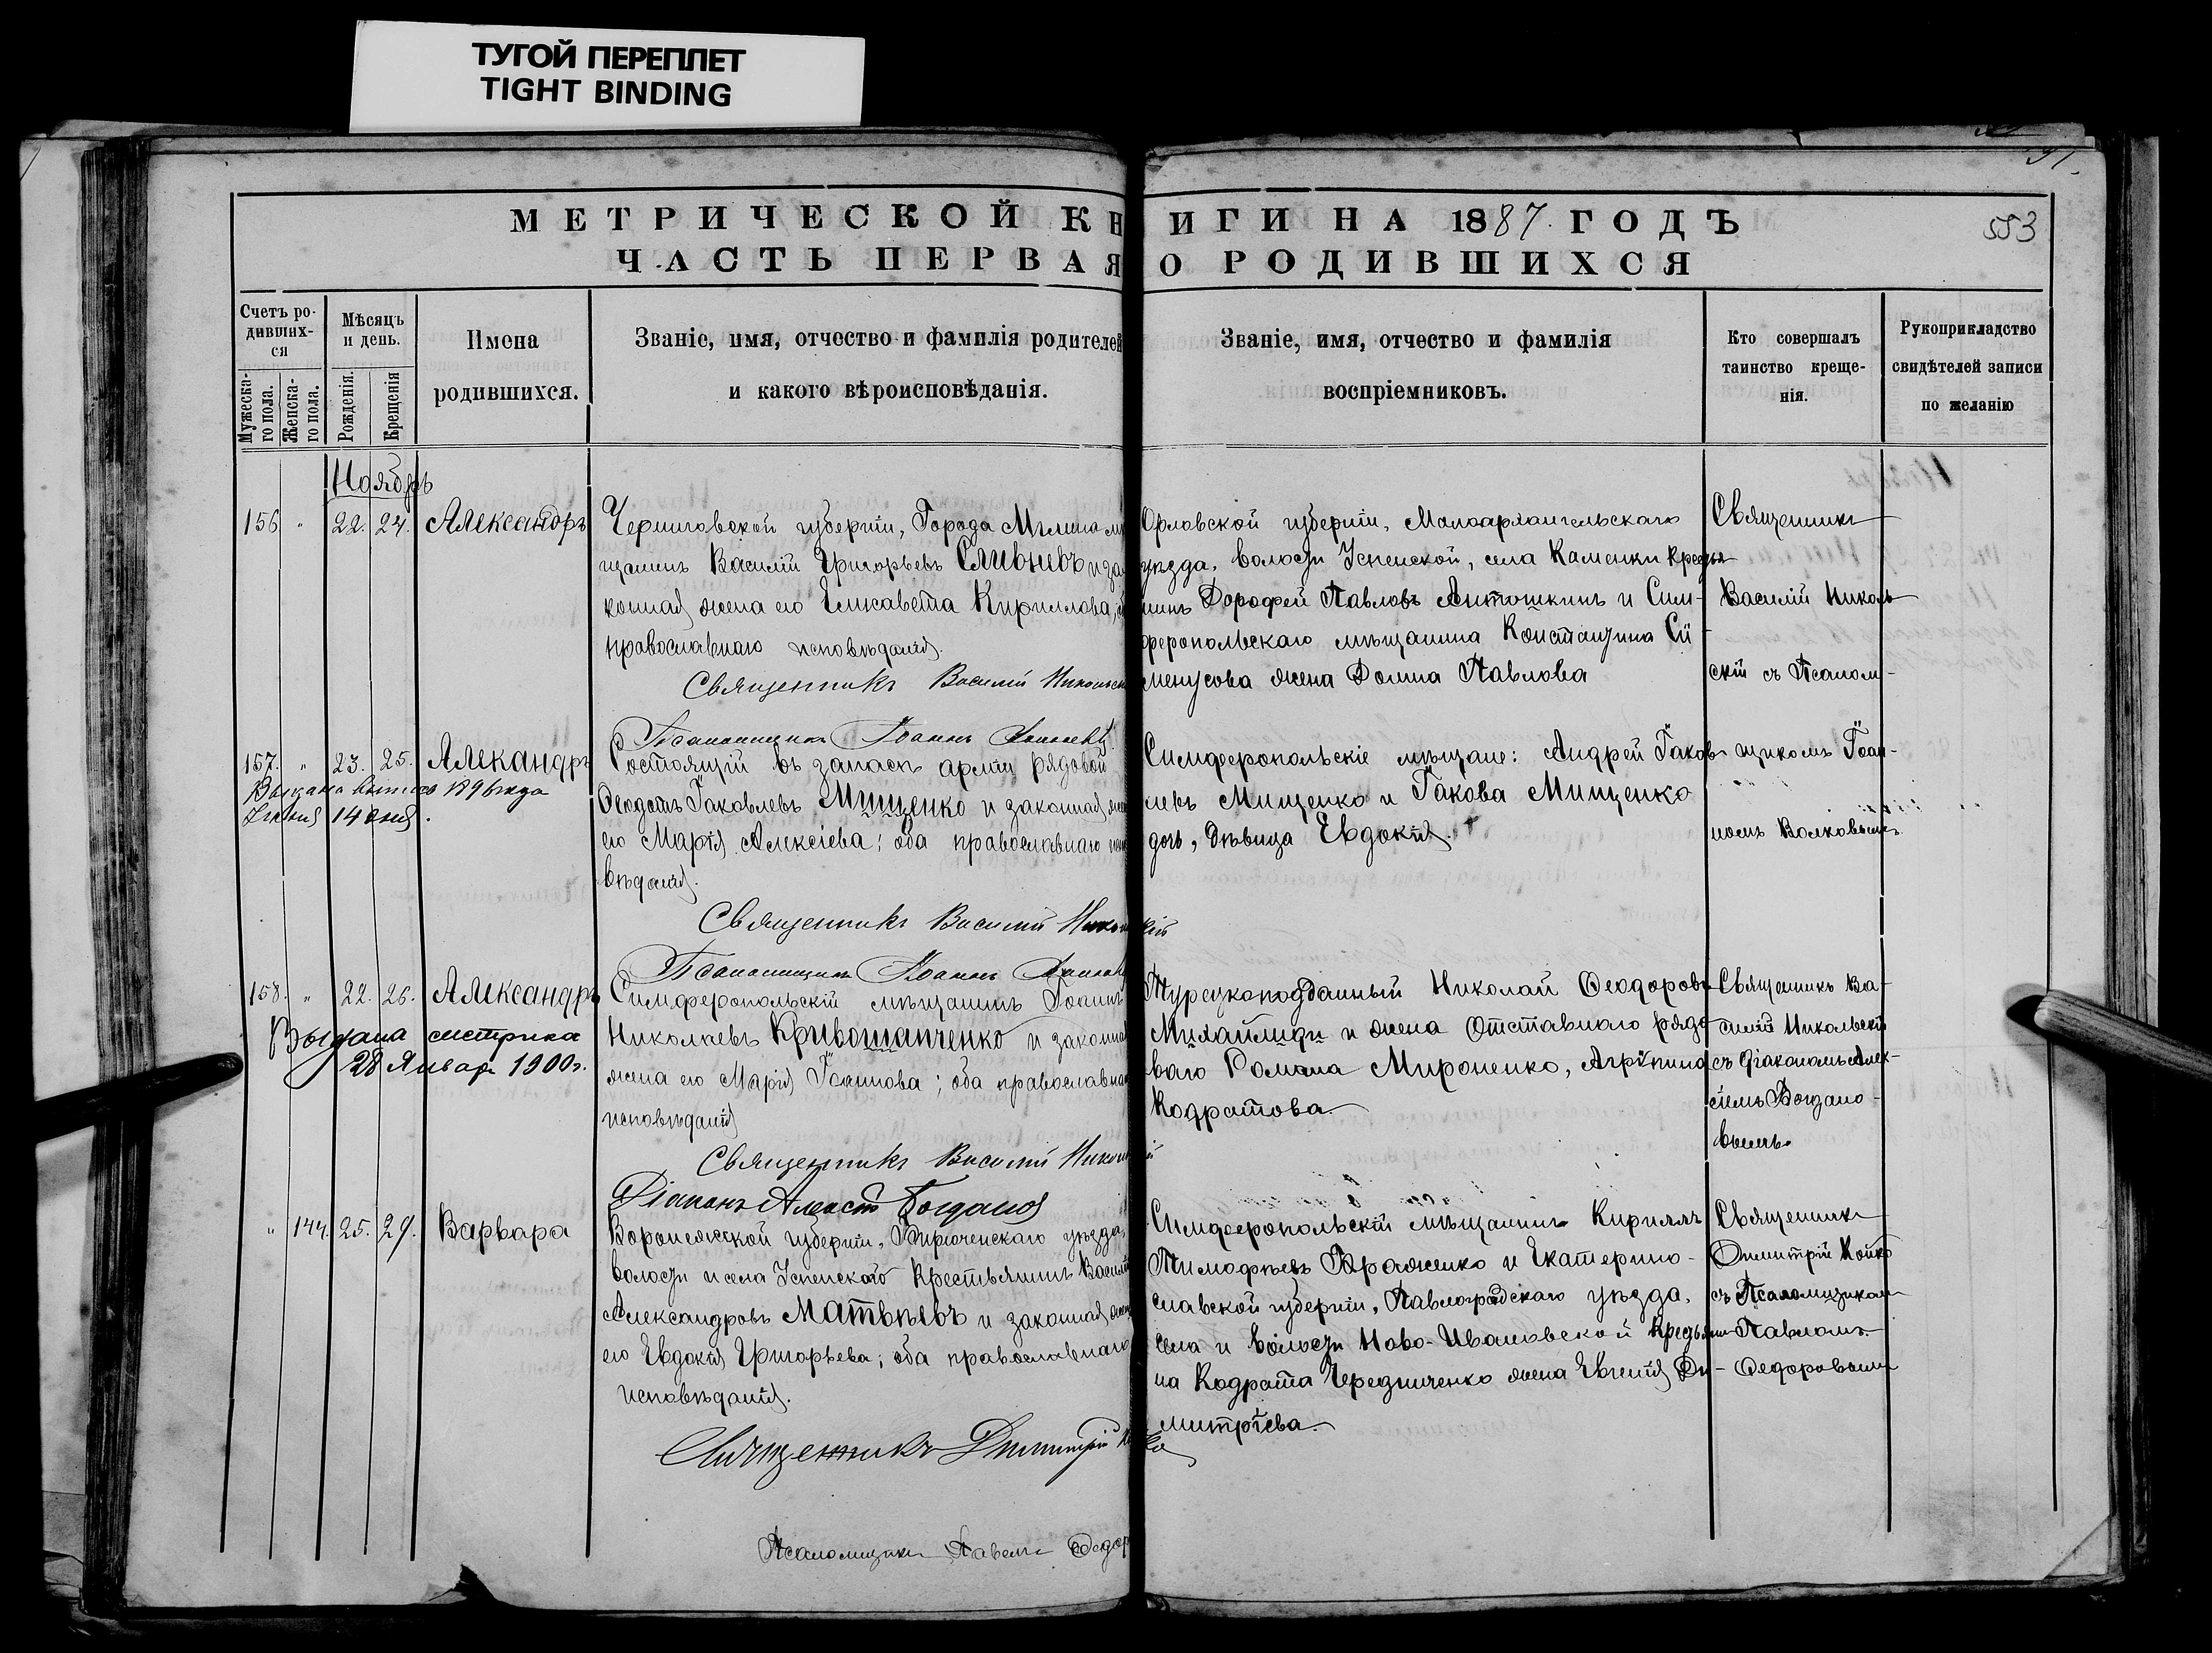 ТУГОЙ ПЕРЕПЛЕТ
TIGHT BINDING
91.
МЕТРИЧЕСКОЙ КНИГИ НА 1887. ГОДЪ
553
ЧАСТЬ ПЕРВАЯ О РОДИВШИХСЯ
Счетъ ро-
дивших-
ся
Мужеска-
го пола.
Женска-
го пола.
Мѣсяцъ
и день.
Рожденія.
Крещенія
Имена
родившихся.
Званіе, имя, отчество и фамилія родителей
и какого вѣроисповѣданія.
Званіе, имя, отчество и фамилія
воспріемниковъ.
Кто совершалъ
таинство креще-
нія.
Рукоприкладство
свидѣтелей записи
по желанію
Ноябрь
156 " 22. 24. Александръ
Черниговской губерніи, Города Мглина мѣ
щанинъ Василій Григорьевъ Сливневъ и за
конная жена его Елисавета Кириллова,
православнаго исповѣданія.
Священникъ Василій Никольск
Псаломщикъ Іоаннъ
Орловской губерніи, Малоархангельскаго
уѣзда, волости Успенской, села Каменки Крестья
нинъ Дорофей Павловъ Антошкинъ и Сим-
феропольскаго мѣщанина Константина Си-
менусова жена Домна Павлова
Священникъ
Василій Николь
скій съ Псалом-
щикомъ Іоан-
номъ Волковымъ.
157. " 23. 25. Алекандръ
Выдана выпись 1896 года
14 дня.
Состоящій въ запасѣ арміи рядовой
Ѳеодотъ Іаковлевъ Мищенко и законная жена
его Марія Алексіева; оба православнаго испо
вѣданія.
Священникъ Василій Никольскій
Псаломщикъ Іоаннъ
Симферопольскіе мѣщане: Андрей Іаков-
левъ Мищенко и Іакова Мищенко
дочь, дѣвица Евдокія.
158. " 22. 26. Александръ
Выдана метрика
28 Январ 1900 г.
Симферопольскій мѣщанинъ Іоаннъ
Николаевъ Кривошапченко и законна
жена его Марія Іоаннова; оба православна
исповѣданія
Священникъ Василій Никольскій
Діаконъ Алексій Богданов
Турецкоподданный Николай Ѳеодоровъ
Михаилиди и жена Отставнаго рядо-
ваго Романа Мироненко, Агріпина
Кодратова.
Священникъ Ва-
силій Никольскій
съ Діакономъ Алек-
сіемъ Богдано-
вымъ.
" 144. 25. 29. Варвара
Воронежской губерніи, Бирюченскаго уѣзда,
волости и села Успенскаго Крестьянинъ Василій
Александровъ Матвѣевъ и законная жена
его Евдокія Григорьева; оба православнаго
исповѣданія.
Священникъ Димитрій Койко
Псаломщикъ Павелъ Ѳедор
Симферопольскій мѣщанинъ Кириллъ
Тимофѣевъ Враженко и Екатерино-
славской губерніи, Павлоградскаго уѣзда,
села и волости Ново-Ивановской Крестьяни
на Кодрата Чередниченко жена Евгенія Ди-
митріева.
Священникъ
Димитрій Койко
съ Псаломщикомъ
Павломъ
Ѳедоровымъ